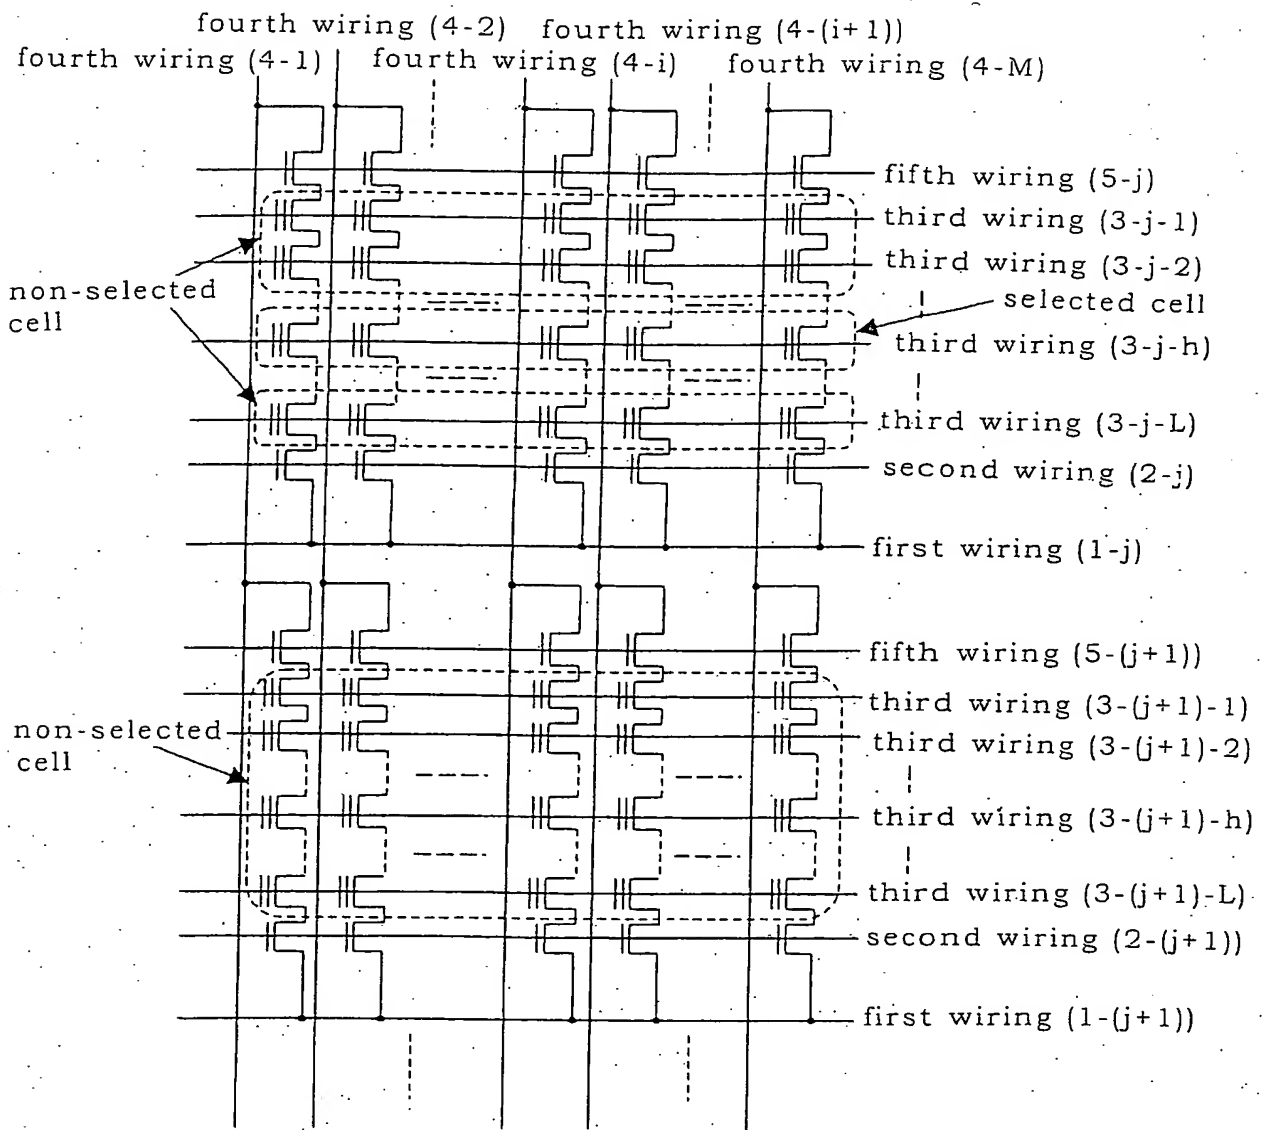 fourth wiring (4-2) fourth wiring (4-(i+1))
fourth wiring (4-1) fourth wiring (4-i) fourth wiring (4-M)
fifth wiring (5-j)
third wiring (3-j-1)
third wiring (3-j-2)
non-selected
cell
selected cell
third wiring (3-j-h)
third wiring (3-j-L)
second wiring (2-j)
first wiring (1-j)
fifth wiring (5-(j+1))
third wiring (3-(j+1)-1)
non-selected
cell
third wiring (3-(j+1)-2)
third wiring (3-(j+1)-h)
third wiring (3-(j+1)-L)
second wiring (2-(j+1))
first wiring (1-(j+1))